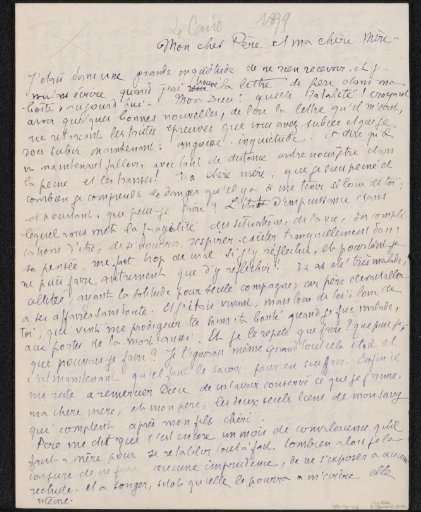 Le Caire 1899
Mon cher Père et ma chère Mère
J'étais dans une grande inquiétude de ne rien recevoir, et j'
écrire quand j'ai trouvé la lettre de Père dans ma
boîte, aujourd'hui. Mon Dieu! quelle fatalité! croyant
avoir quelques bonnes nouvelles, de lire la lettre qu'il m'écrit,
me les tristes épreuves que vous avez subies et que je
dois subir maintenant! angoisse, inquiétude! et dire qu'il
va maintenant falloir avec tant de distance entre nous être dans
la peine et les transes! Ma chère mère, que je suis peiné et
combien je comprends le danger qu'il y a à me tenir si loin de toi;
et pourtant, que puis-je faire? L'état d'impuissance dans
lequel vous met la fragilité des situations, de la vie, en
d'être, de pouvoir respirer exister tranquillement dans
sa pensée, me fait trop de mal si j'y réfléchis, et pourtant je
ne puis faire autrement que d'y réfléchir! Tu as été très malade,
alitée, ayant la solitude pour seule compagne, car père devait aller
à ses affaires sans doute! Et j'étais vivant, mais loin de toi, loin de
toi, que vins me prodiguer ta bonté quand je fus malade,
aux portes de la mort aussi. Et je le répète que faire? que puis-je,
que pouvais-je faire? Je l'ignorais même quand tout cela était et
c'est maintenant qu'il faut le savoir pour en souffrir. Enfin il
me reste à remercier Dieu de m'avoir conservé ce que j'aime,
ma chère mère, et mon père, les deux seuls liens de mon sang
qui comptent après mon fils chéri.
Père me dit que c'est encore un mois de convalescence qu'il
faut à mère pour se rétablir tout à fait. Combien alors je la
conjure de ne faire aucune imprudence, de ne s'exposer à aucune
rechute. Et à songer, sitôt qu'elle le pourra à m'écrire elle
même.